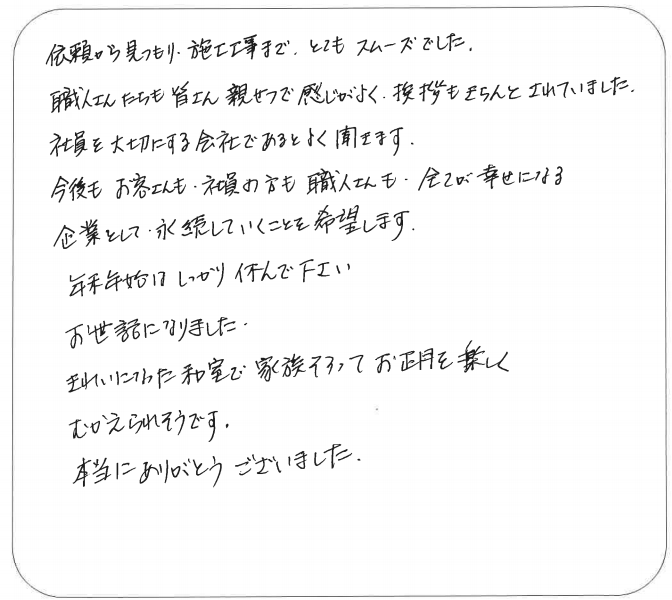 依頼から見つもり、施工工事まで、とても スムーズでした。
職人さんたちも皆さん 親せつで感じがよく、挨拶もきちんと されていました。
社員を大切にする会社であるとよく聞きます。
今後も お客さんも、社員の方も 職人さんも、全てが幸せになる
企業として、永続していくことを希望します。
年末年始は しっかり休んで下さい
お世話になりました。
きれいになった和室で家族そろって お正月を楽しく
むかえられそうです。
本当にありがとう ございました。